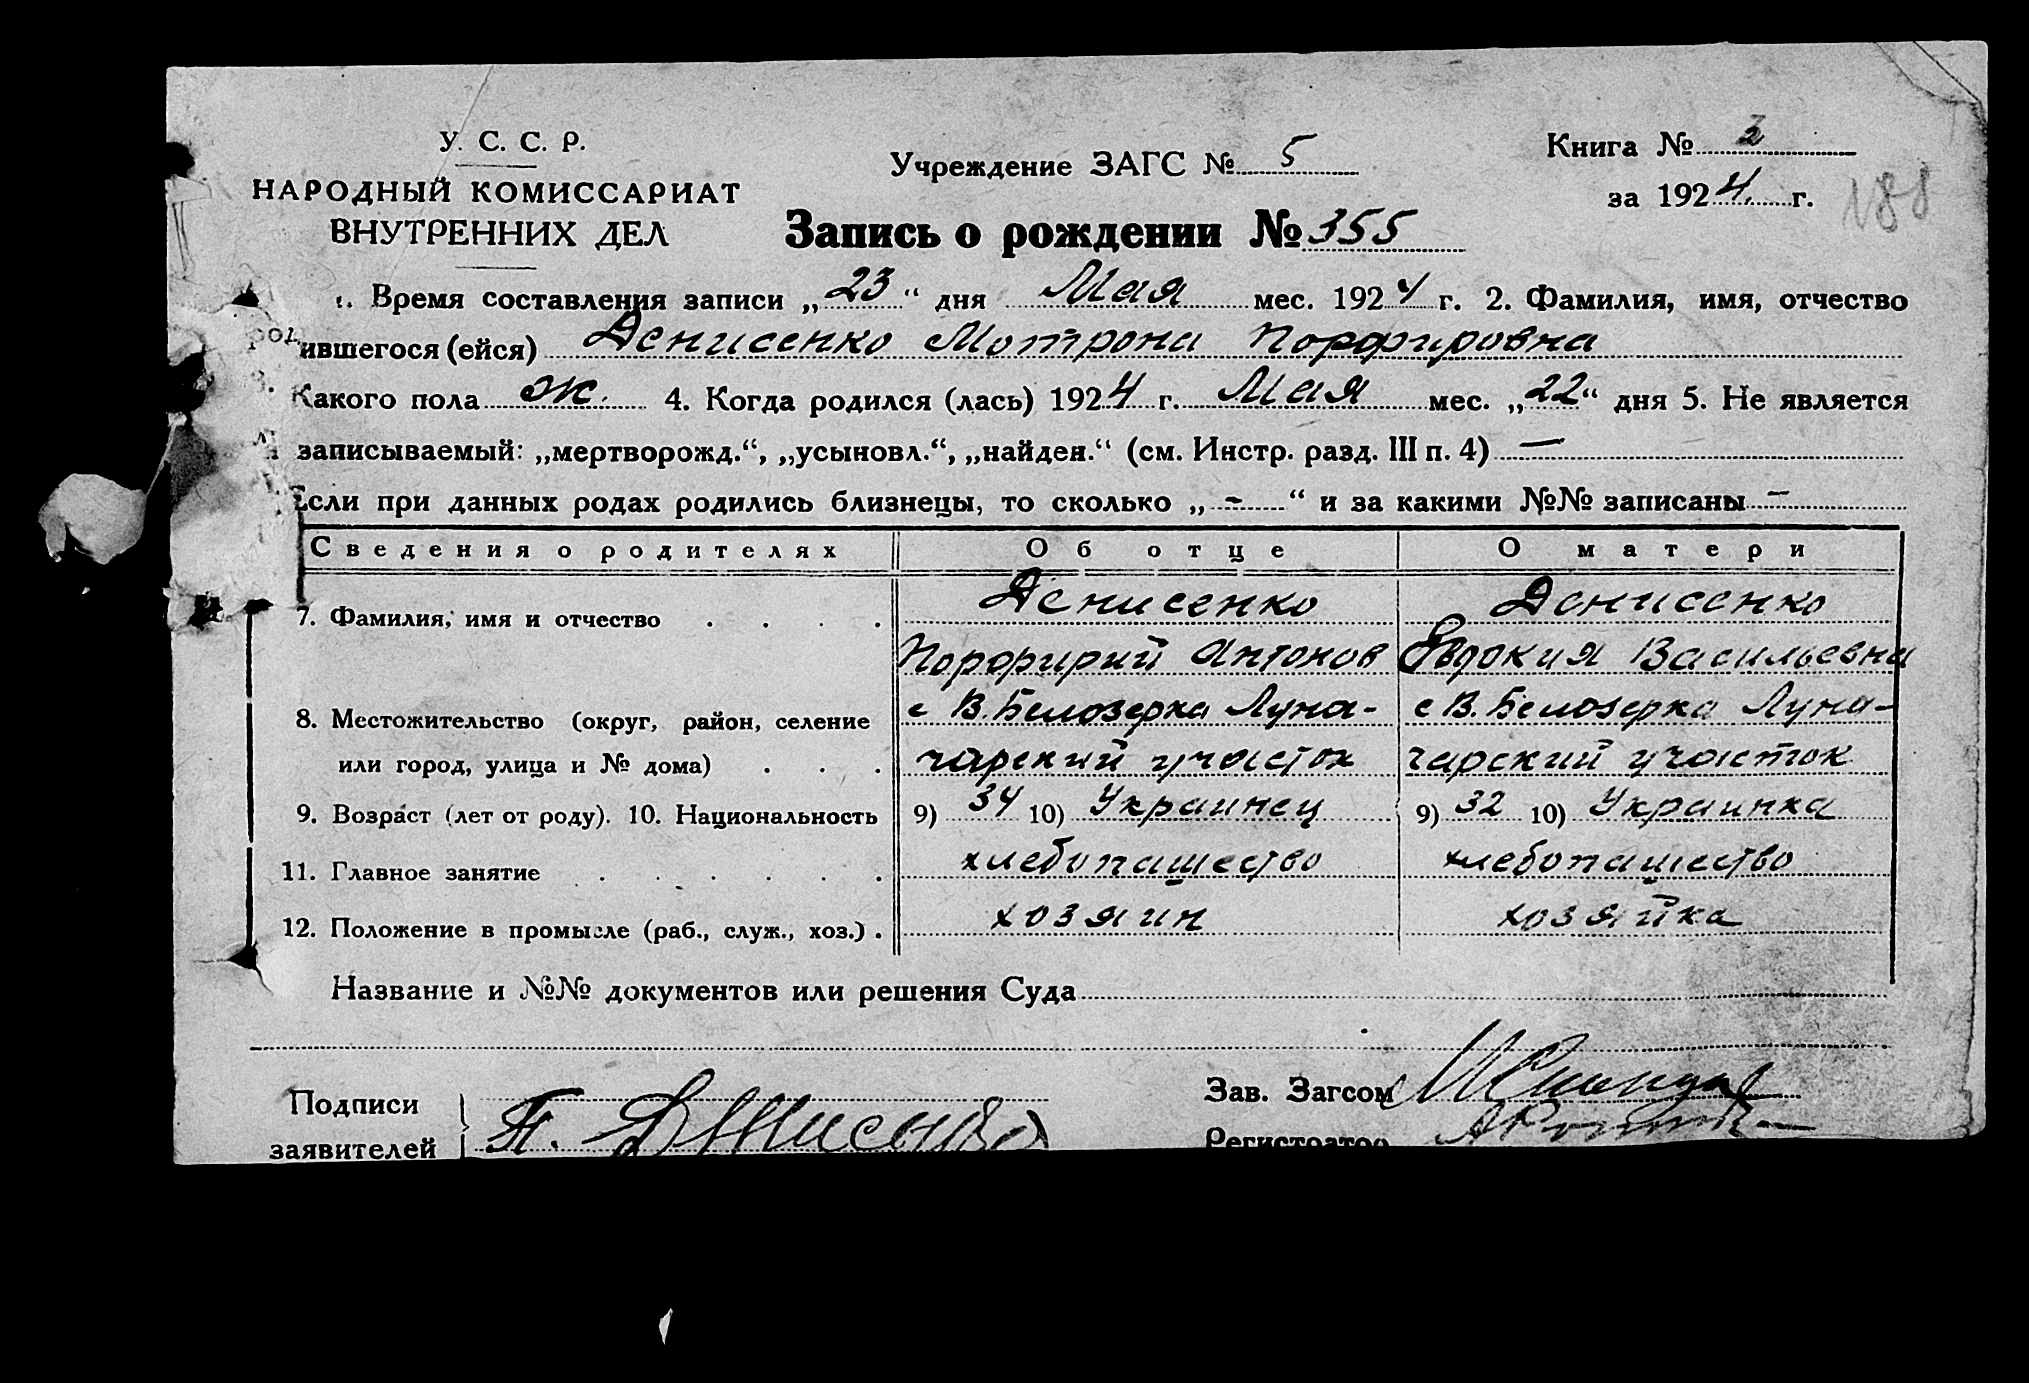 У. С. С. Р.
НАРОДНЫЙ КОМИССАРИАТ
ВНУТРЕННИХ ДЕЛ
Учреждение ЗАГС № 5
Книга № 3
за 1924 г.
188
Запись о рождении № 355
1. Время составления записи „23“ дня Мая мес. 1924 г. 2. Фамилия, имя, отчество
родившегося (ейся) Денисенко Мотрона Порфировна
3. Какого пола ж. 4. Когда родился (лась) 1924 г. Мая мес. „22“ дня 5. Не является
ли записываемый: „мертворожд.“, „усыновл.“, „найден.“ (см. Инстр. разд. III п. 4) —
Если при данных родах родились близнецы, то сколько „-“ и за какими №№ записаны —
Сведения о родителях Об отце О матери
7. Фамилия, имя и отчество Денисенко Денисенко
Порфирий Антонов Евдокия Васильевна
8. Местожительство (округ, район, селение с В. Белозерка Луна- с В. Белозерка Луна-
или город, улица и № дома) чарский участок чарский участок
9. Возраст (лет от роду). 10. Национальность 9) 34 10) Украинец 9) 32 10) Украинка
11. Главное занятие хлебопашество хлебопашество
12. Положение в промысле (раб., служ., хоз.) хозяин хозяйка
Название и №№ документов или решения Суда
Подписи
заявителей
П. Денисенко
Зав. Загсом
Регистратор